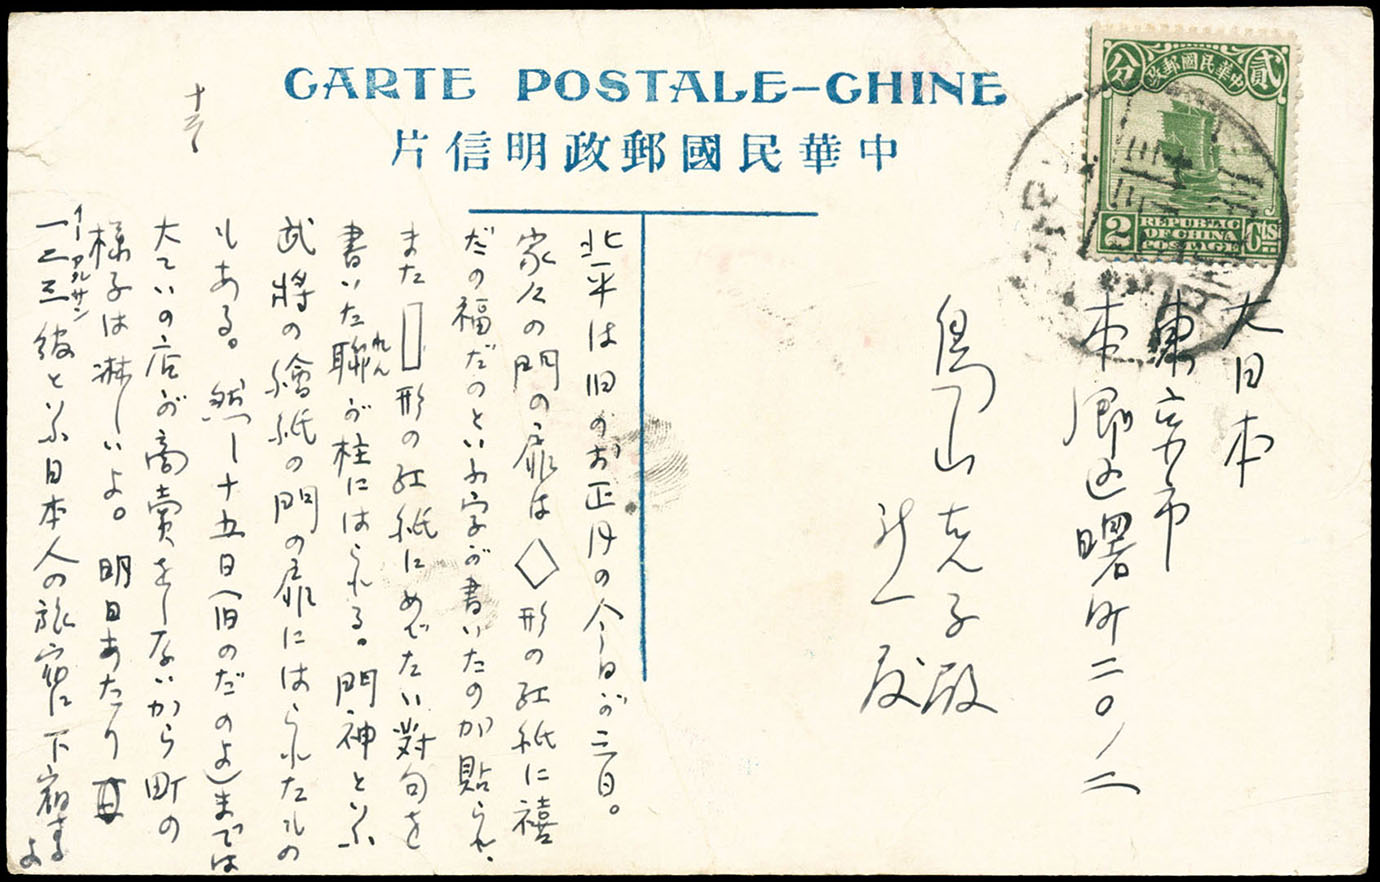 CARTE POSTALE-CHINE
中華民國郵政明信片
中華民國郵政
貳
分
2
Cts
REPUBLIC
OF CHINA
POSTAGE
大日本
東京市
本郷区曙町二〇ノ二
鳥山克子殿
殿
北平は旧のお正月の今日が三日。
家々の門の扉は◇形の紅紙に禧
だの福だのといふ字が書いたのが貼られ、
また▯形の紅紙にめでたい對句を
書いた聯が柱にはられる。門神と云ふ
れん
武將の繪紙の門の扉にはられたルの
もある。然し十五日(旧のだのよ)までは
大ていの店が商賣をしないから町の
様子は淋しいよ。明日あたり
一二三舘と云ふ日本人の旅宿に下宿する
イーアルサン
よ